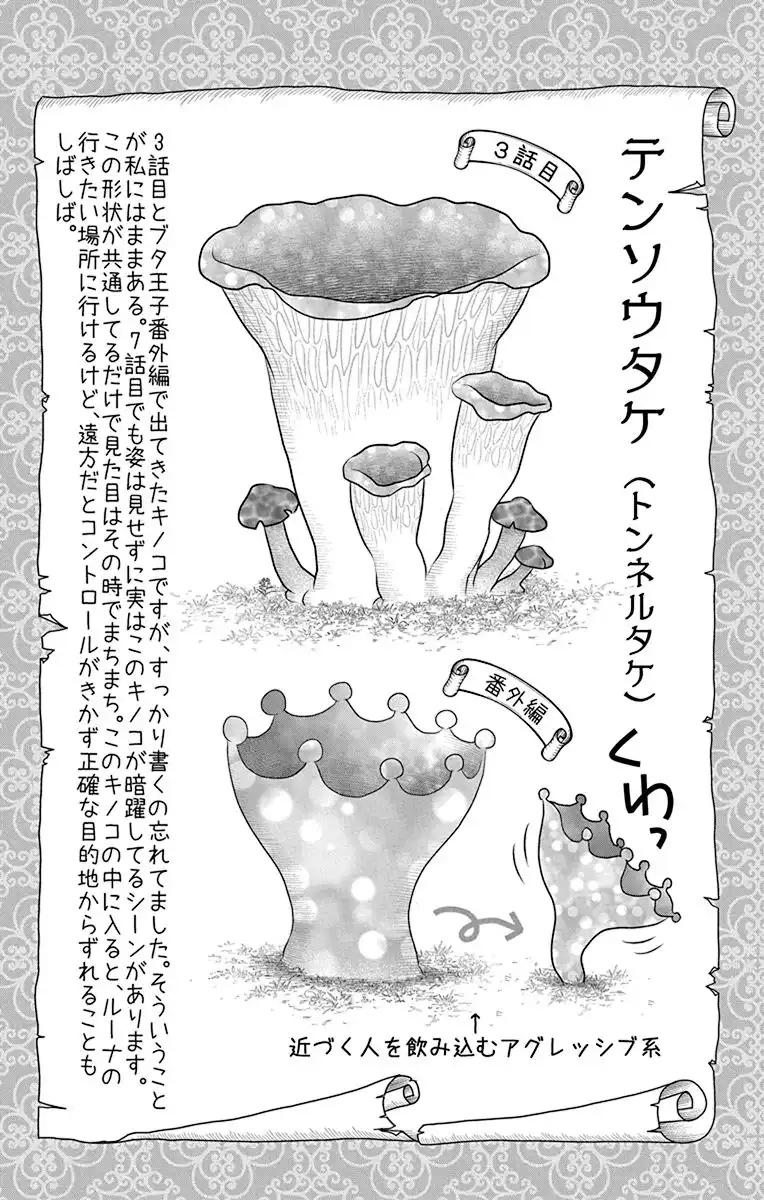 テンソウタケ（トンネルタケ）
3話目
くわっ
番外編
↑
近づく人を飲み込むアグレッシブ系
3話目とブタ王子番外編で出てきたキノコですが、すっかり書くの忘れてました。そういうこと
が私にはままある。7話目でも姿は見せずに実はこのキノコが暗躍してるシーンがあります。
この形状が共通してるだけで見た目はその時でまちまち。このキノコの中に入ると、ルーナの
行きたい場所に行けるけど、遠方だとコントロールがきかず正確な目的地からずれることも
しばしば。